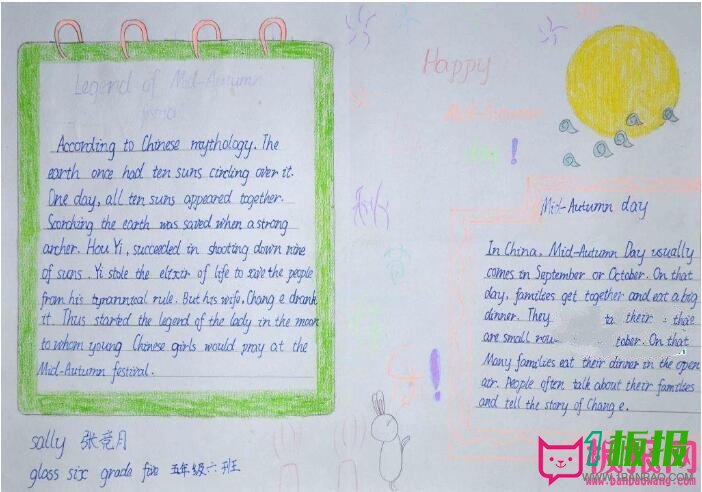 Legend of Mid-Autumn
According to Chinese mythology. The
earth once had ten suns circling over it.
One day, all ten suns appeared together.
Scorching the earth was saved when a strong
archer. Hou Yi, succeeded in shooting down nine
of suns. Yi stole the elixir of life to save the people
from his tyrannical rule. But his wife, Chang e drank
it. Thus started the legend of the lady in the moon
to whom young Chinese girls would pray at the
Mid-Autumn festival.
sally 张竞月
glass six grade five 五年级六班
Happy
Mid-Autumn
day!
Mid-Autumn day
In China, Mid-Autumn Day usually
comes in September or October. On that
day, families get together and eat a big
dinner. They to their
are small tober. On that
Many families eat their dinner in the open
air. People often talk about their families
and tell the story of Chang e.
板报网
WWW.1BANBAO.COM
www.banbaowang.com